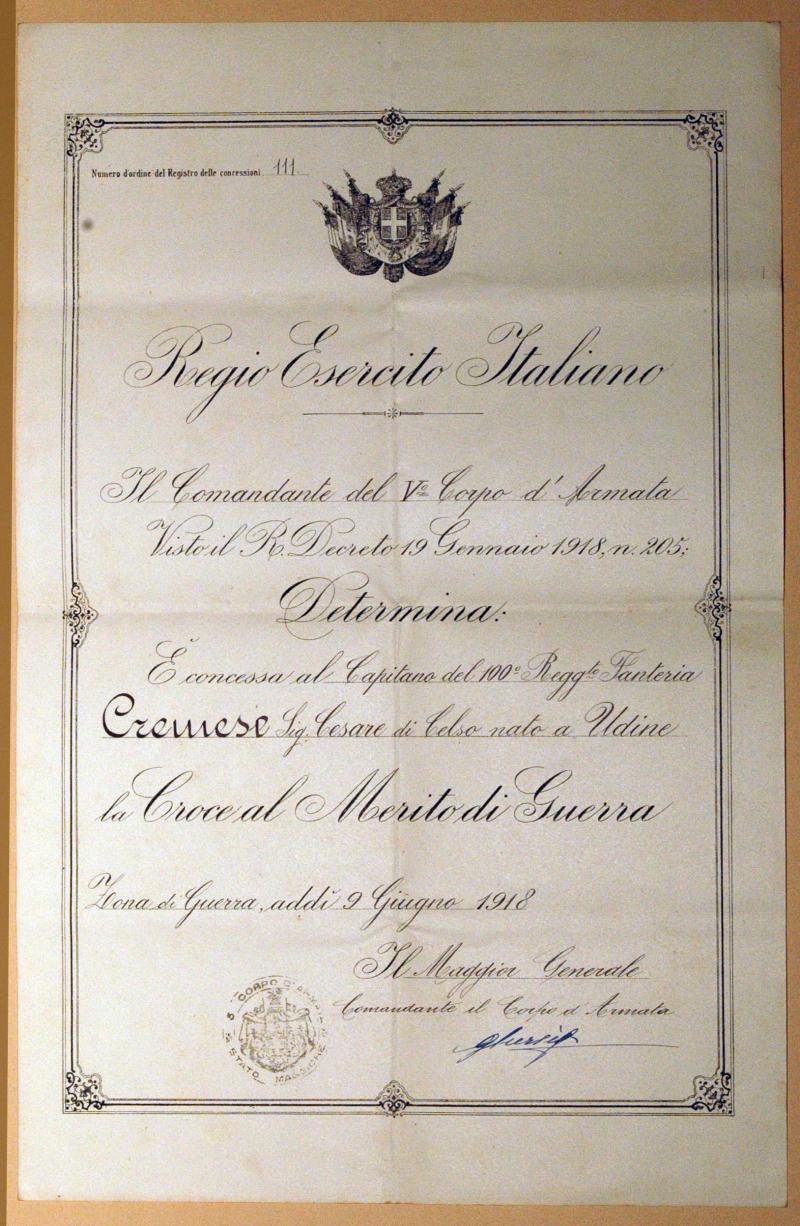 Numero d'ordine del Registro delle concessioni 111.
Regio Esercito Italiano
Il Comandante del Vº Corpo d'Armata
Visto il R. Decreto 19 Gennaio 1918, n. 205;
Determina:
È concessa al Capitano del 100º Reggto Fanteria
Cremese Sig. Cesare di Celso nato a Udine
la Croce al Merito di Guerra
Zona di Guerra, addì 9 Giugno 1918
Il Maggior Generale
Comandante il Corpo d'Armata
5º CORPO D'ARMATA
STATO MAGGIORE